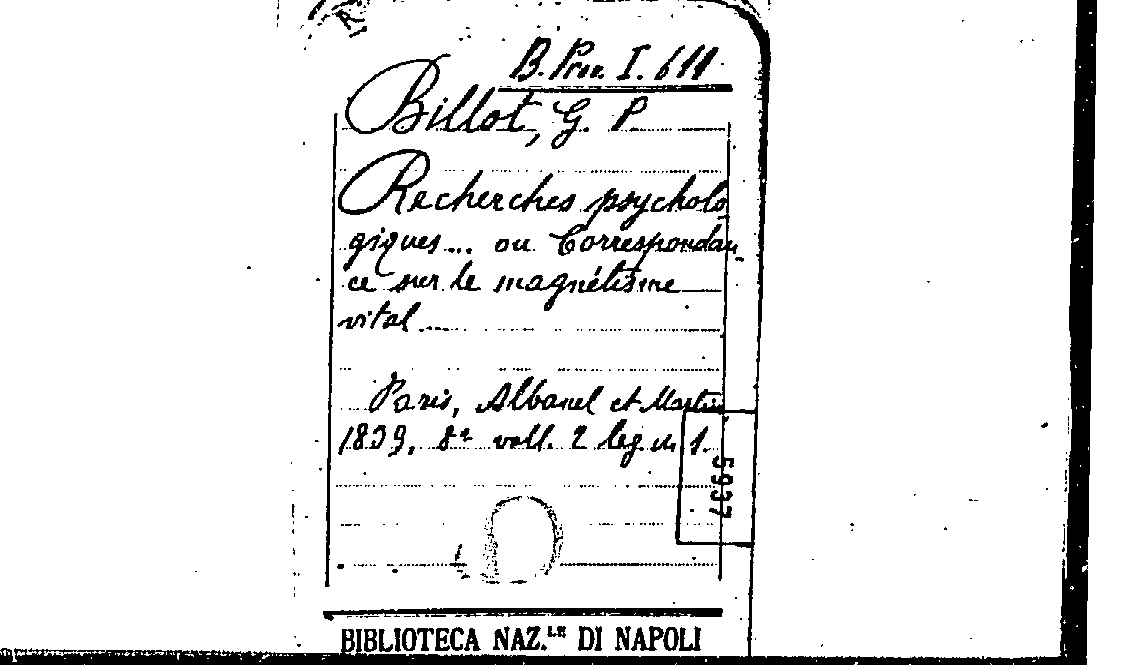 B. Prov. I. 611
Billot, G. P
Recherches psycholo
giques... ou Correspondan,
ce sur le magnétisme
vital...
Paris, Albanel et Martin
1839, 8° voll. 2 leg. in 1.
5937
BIBLIOTECA NAZ.LE DI NAPOLI